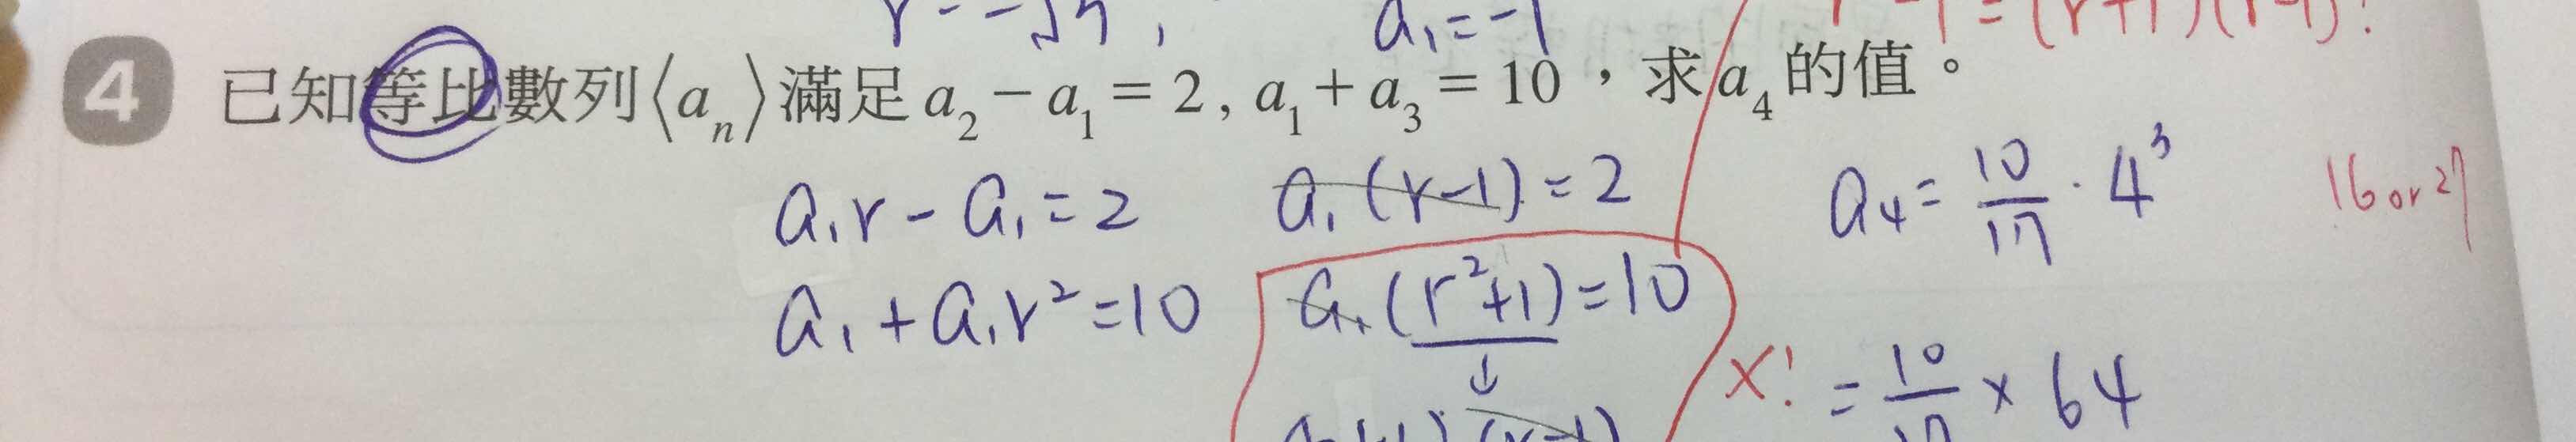 a₁=-1
4 已知等比數列⟨aₙ⟩滿足 a₂-a₁=2, a₁+a₃=10，求 a₄ 的值。
a₁r-a₁=2 a₁(r-1)=2 a₄=10/17·4³ 16 or 27
a₁+a₁r²=10 a₁(r²+1)=10
↓ X! =10/17×64